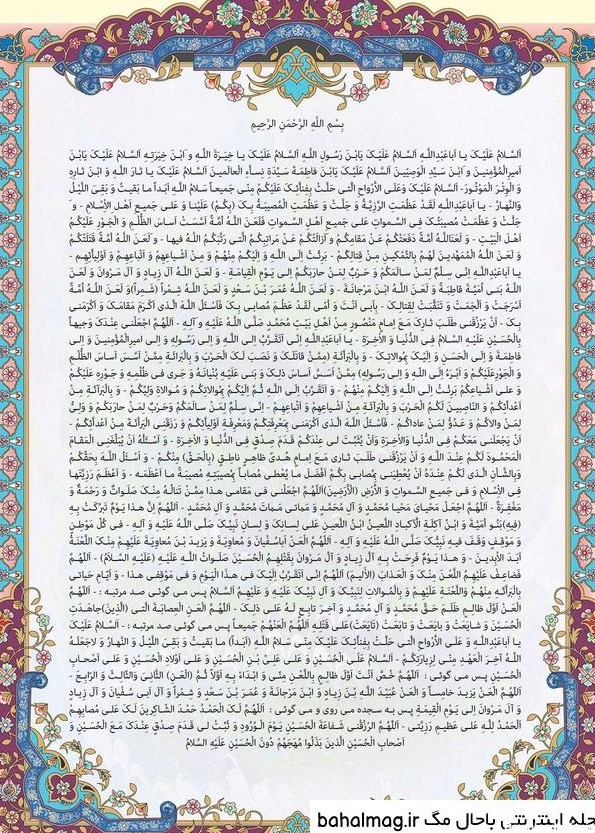 بِسْمِ اللَّهِ الرَّحْمَنِ الرَّحِیمِ
اَلسَّلامُ عَلَیْکَ یا اَباعَبْدِاللَّهِ اَلسَّلامُ عَلَیْکَ یَابْنَ رَسُولِ اللَّهِ اَلسَّلامُ عَلَیْکَ یا خِیَرَةَ اللَّهِ و َابْنَ خِیَرَتِهِ اَلسَّلامُ عَلَیْکَ یَابْنَ
اَمیرِالْمُؤْمِنینَ وَ ابْنَ سَیِّدِ الْوَصِیّینَ اَلسَّلامُ عَلَیْکَ یَابْنَ فاطِمَةَ سَیِّدَةِ نِساَّءِ الْعالَمینَ اَلسَّلامُ عَلَیْکَ یا ثارَ اللَّهِ وَ ابْنَ ثارِهِ
وَ الْوِتْرَ الْمَوْتُورَ- اَلسَّلامُ عَلَیْکَ وَعَلَی الاَْرْواحِ الَّتی حَلَّتْ بِفِناَّئِکَ عَلَیْکُمْ مِنّی جَمیعاً سَلامُ اللَّهِ اَبَداً ما بَقیتُ وَ بَقِیَ اللَّیْلُ
وَالنَّهارُ - یا اَباعَبْدِاللَّهِ لَقَدْ عَظُمَتِ الرَّزِیَّةُ وَ جَلَّتْ وَ عَظُمَتِ الْمُصیبَةُ بِکَ (بِکُمْ) عَلَیْنا وَ عَلی جَمیعِ اَهْلِ الاِْسْلامِ - و َ
جَلَّتْ وَ عَظُمَتْ مُصیبَتُکَ فِی السَّمواتِ عَلی جَمیعِ اَهْلِ السَّمواتِ فَلَعَنَ اللَّهُ اُمَّةً اَسَّسَتْ اَساسَ الظُّلْمِ وَ الْجَوْرِ عَلَیْکُمْ
اَهْلَ الْبَیْتِ - وَ لَعَنَ اللَّهُ اُمَّةً دَفَعَتْکُمْ عَنْ مَقامِکُمْ وَ اَزالَتْکُمْ عَنْ مَراتِبِکُمُ الَّتی رَتَّبَکُمُ اللَّهُ فیها - و َلَعَنَ اللَّهُ اُمَّةً قَتَلَتْکُمْ
وَ لَعَنَ اللَّهُ الْمُمَهِّدینَ لَهُمْ بِالتَّمْکینِ مِنْ قِتالِکُمْ- بَرِئْتُ اِلَی اللَّهِ وَ اِلَیْکُمْ مِنْهُمْ وَ مِنْ اَشْیاعِهِمْ وَ اَتْباعِهِمْ وَ اَوْلِیاَّئِهِم -
یا اَباعَبْدِاللَّهِ اِنّی سِلْمٌ لِمَنْ سالَمَکُمْ وَ حَرْبٌ لِمَنْ حارَبَکُمْ اِلی یَوْمِ الْقِیامَةِ - وَ لَعَنَ اللَّهُ آلَ زِیادٍ وَ آلَ مَرْوانَ وَ لَعَنَ
اللَّهُ بَنی اُمَیَّةَ قاطِبَةً وَ لَعَنَ اللَّهُ ابْنَ مَرْجانَةَ - وَ لَعَنَ اللَّهُ عُمَرَ بْنَ سَعْدٍ وَ لَعَنَ اللَّهُ شِمْراً (شَمِراً)وَ لَعَنَ اللَّهُ اُمَّةً
اَسْرَجَتْ وَ اَلْجَمَتْ وَ تَنَقَّبَتْ لِقِتالِکَ - بِاَبی اَنْتَ وَ اُمّی لَقَدْ عَظُمَ مُصابی بِکَ فَاَسْئَلُ اللَّهَ الَّذی اَکْرَمَ مَقامَکَ وَ اَکْرَمَنی
بِکَ - اَنْ یَرْزُقَنی طَلَبَ ثارِکَ مَعَ اِمامٍ مَنْصُورٍ مِنْ اَهْلِ بَیْتِ مُحَمَّدٍ صَلَّی اللَّهُ عَلَیْهِ وَ آلِهِ - اَللّهُمَّ اجْعَلْنی عِنْدَکَ وَجیهاً
بِالْحُسَیْنِ عَلَیْهِ السَّلامُ فِی الدُّنْیا وَ الاْخِرَةِ - یا اَباعَبْدِاللَّهِ اِنّی اَتَقَرَّبُ اِلی اللَّهِ وَ اِلی رَسُولِهِ وَ اِلی امیرِالْمُؤْمِنینَ وَ اِلی
فاطِمَةَ وَ اِلَی الْحَسَنِ وَ اِلَیْکَ بِمُوالاتِکَ - وَ بِالْبَراَّئَةِ (مِمَّنْ قاتَلَکَ وَ نَصَبَ لَکَ الْحَرْبَ وَ بِالْبَراَّئَةِ مِمَّنْ اَسَّسَ اَساسَ الظُّلْمِ
وَ الْجَوْرِعَلَیْکُمْ وَ اَبْرَءُ اِلَی اللَّهِ وَ اِلی رَسُولِهِ) مِمَّنْ اَسَسَّ اَساسَ ذلِکَ وَ بَنی عَلَیْهِ بُنْیانَهُ وَ جَری فی ظُلْمِهِ وَ جَوْرِهِ عَلَیْکُمْ
وَ علی اَشْیاعِکُمْ بَرِئْتُ اِلَی اللَّهِ وَ اِلَیْکُمْ مِنْهُمْ - وَ اَتَقَرَّبُ اِلَی اللَّهِ ثُمَّ اِلَیْکُمْ بِمُوالاتِکُمْ وَ مُوالاةِ وَلِیِّکُمْ - وَ بِالْبَراَّئَةِ مِنْ
اَعْداَّئِکُمْ وَ النّاصِبینَ لَکُمُ الْحَرْبَ وَ بِالْبَراَّئَةِ مِنْ اَشْیاعِهِمْ وَ اَتْباعِهِمْ - اِنّی سِلْمٌ لِمَنْ سالَمَکُمْ وَحَرْبٌ لِمَنْ حارَبَکُمْ وَ وَلِیٌّ
لِمَنْ والاکُمْ وَ عَدُوٌّ لِمَنْ عاداکُمْ - فَاَسْئَلُ اللَّهَ الَّذی اَکْرَمَنی بِمَعْرِفَتِکُمْ وَمَعْرِفَةِ اَوْلِیاَّئِکُمْ وَ رَزَقَنِی الْبَراَّئَةَ مِنْ اَعْداَّئِکُمْ -
اَنْ یَجْعَلَنی مَعَکُمْ فِی الدُّنْیا وَالاْخِرَةِ وَاَنْ یُثَبِّتَ لی عِنْدَکُمْ قَدَمَ صِدْقٍ فِی الدُّنْیا وَ الاْخِرَةِ- وَ اَسْئَلُهُ اَنْ یُبَلِّغَنِی الْمَقامَ
الْمَحْمُودَ لَکُمْ عِنْدَ اللَّهِ وَ اَنْ یَرْزُقَنی طَلَبَ ثاری مَعَ اِمامٍ هُدیً ظاهِرٍ ناطِقٍ (بِالْحَقِّ) مِنْکُمْ - وَ اَسْئَلُ اللَّهَ بِحَقِّکُمْ
وَبِالشَّاْنِ الَّذی لَکُمْ عِنْدَهُ اَنْ یُعْطِیَنی بِمُصابی بِکُمْ اَفْضَلَ ما یُعْطی مُصاباً بِمُصیبَتِهِ مُصیبَةً ما اَعْظَمَه - وَ اَعْظَمَ رَزِیَّتَها
فِی الاِْسْلامِ وَ فی جَمیعِ السَّمواتِ وَ الاَْرْضِ (الاَْرَضینَ)اَللّهُمَّ اجْعَلْنی فی مَقامی هذا مِمَّنْ تَنالُهُ مِنْکَ صَلَواتٌ وَ رَحْمَةٌ وَ
مَغْفِرَةٌ - اَللّهُمَّ اجْعَلْ مَحْیایَ مَحْیا مُحَمَّدٍ وَ آلِ مُحَمَّدٍ وَ مَماتی مَماتَ مُحَمَّدٍ وَ آلِ مُحَمَّدٍ - اَللّهُمَّ اِنَّ هذا یَوْمٌ تَبَرَّکَتْ بِهِ
(فیهِ)بَنُو اُمَیَّةَ وَ ابْنُ آکِلَةِ الَْآکبادِ اللَّعینُ ابْنُ اللَّعینِ عَلی لِسانِکَ وَ لِسانِ نَبِیِّکَ صَلَّی اللَّهُ عَلَیْهِ وَ آلِهِ - فی کُلِّ مَوْطِنٍ
وَ مَوْقِفٍ وَقَفَ فیهِ نَبِیُّکَ صَلَّی اللَّهُ عَلَیْهِ وَ آلِهِ- اَللّهُمَّ الْعَنْ اَباسُفْیانَ وَ مُعاوِیَةَ وَ یَزیدَ بْنَ مُعاوِیَةَ عَلَیْهِمْ مِنْکَ اللَّعْنَةُ
اَبَدَ الاْبِدینَ - وَ هذا یَوْمٌ فَرِحَتْ بِهِ آلُ زِیادٍ وَ آلُ مَرْوانَ بِقَتْلِهِمُ الْحُسَیْنَ صَلَواتُ اللَّهِ عَلَیْهِ (عَلَیْهِ السَّلامُ) - اَللّهُمَّ
فَضاعِفْ عَلَیْهِمُ اللَّعْنَ مِنْکَ وَ الْعَذابَ (الاَْلیمَ) اَللّهُمَّ اِنّی اَتَقَرَّبُ اِلَیْکَ فی هذَا الْیَوْمِ وَ فی مَوْقِفی هذا - وَ اَیّامِ حَیاتی
بِالْبَراَّئَةِ مِنْهُمْ وَاللَّعْنَةِ عَلَیْهِمْ وَ بِالْمُوالاتِ لِنَبِیِّکَ وَ آلِ نَبِیِّکَ عَلَیْهِ وَ عَلَیْهِمُ اَلسَّلامُ پس می گوئی صد مرتبه : - اَللّهُمَّ
الْعَنْ اَوَّلَ ظالِمٍ ظَلَمَ حَقَّ مُحَمَّدٍ وَ آلِ مُحَمَّدٍ وَ آخِرَ تابِعٍ لَهُ عَلی ذلِکَ - اَللّهُمَّ الْعَنِ الْعِصابَةَ الَّتی (الَّذینَ)جاهَدَتِ
الْحُسَیْنَ وَ شایَعَتْ وَ بایَعَتْ وَ تابَعَتْ (تایَعَتْ)عَلی قَتْلِهِ اَللّهُمَّ الْعَنْهُمْ جَمیعاً پس می گوئی صد مرتبه : - اَلسَّلامُ عَلَیْکَ
یا اَباعَبْدِاللَّهِ وَ عَلَی الاَْرْواحِ الَّتی حَلَّتْ بِفِناَّئِکَ عَلَیْکَ مِنّی سَلامُ اللَّهِ (اَبَداً) ما بَقیتُ وَ بَقِیَ اللَّیْلُ وَ النَّهارُ وَ لاجَعَلَهُ
اللَّهُ آخِرَ الْعَهْدِ مِنّی لِزِیارَتِکُمْ - اَلسَّلامُ عَلَی الْحُسَیْنِ وَ عَلی عَلِیِّ بْنِ الْحُسَیْنِ وَ عَلی اَوْلادِ الْحُسَیْنِ وَ عَلی اَصْحابِ
الْحُسَیْنِ پس می گوئی : اَللّهُمَّ خُصَّ اَنْتَ اَوَّلَ ظالِمٍ بِاللَّعْنِ مِنّی وَ ابْدَاءْ بِهِ اَوَّلاً ثُمَّ (الْعَنِ) الثّانِیَ وَالثّالِثَ وَ الرّابِعَ -
اَللّهُمَّ الْعَنْ یَزیدَ خامِساً وَ الْعَنْ عُبَیْدَ اللَّهِ بْنَ زِیادٍ وَ ابْنَ مَرْجانَةَ وَ عُمَرَ بْنَ سَعْدٍ وَ شِمْراً وَ آلَ اَبی سُفْیانَ وَ آلَ زِیادٍ
وَ آلَ مَرْوانَ اِلی یَوْمِ الْقِیمَةِ پس به سجده می روی و می گوئی : اَللّهُمَّ لَکَ الْحَمْدُ حَمْدَ الشّاکِرینَ لَکَ عَلی مُصابِهِمْ
اَلْحَمْدُ لِلَّهِ عَلی عَظیمِ رَزِیَّتی - اَللّهُمَّ ارْزُقْنی شَفاعَةَ الْحُسَیْنِ یَوْمَ الْوُرُودِ وَ ثَبِّتْ لی قَدَمَ صِدْقٍ عِنْدَکَ مَعَ الْحُسَیْنِ وَ
اَصْحابِ الْحُسَیْنِ الَّذینَ بَذَلُوا مُهَجَهُمْ دُونَ الْحُسَیْنِ عَلَیْهِ السَّلامُ
جله اینترنتی باحال مگ bahalmag.ir